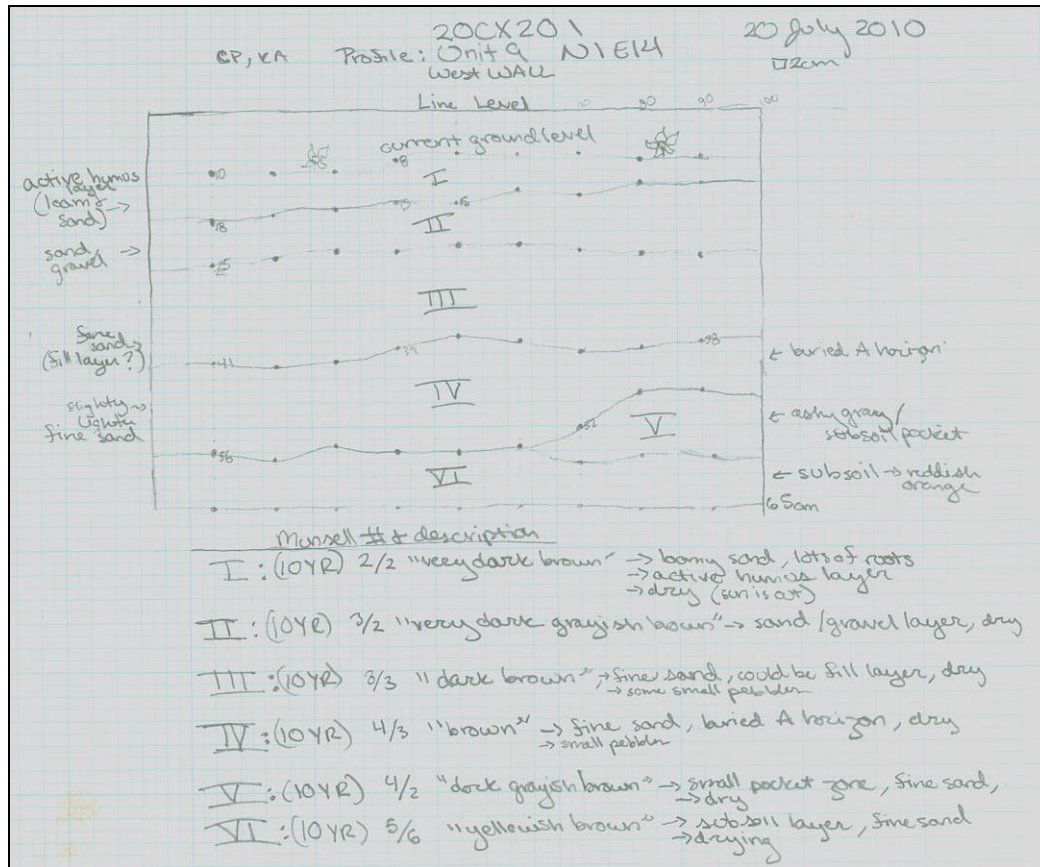 20CX201
20 July 2010
CP, KA Profile: Unit 9 N1E14
West WALL
2cm
Line Level 80 90 100
current ground level
8
10
active humos
layer
(loamy
sand) →
I
15 15
18
II
sand/
gravel →
25
III
fine
sand →
(fill layer?)
41
39
38
← buried A horizon
IV
slightly →
lighter
fine sand
52
V
← ashy gray/
subsoil pocket
56
VI
← subsoil → reddish
orange
65cm
Munsell # & description
I: (10YR) 2/2 "very dark brown" → loamy sand, lots of roots
→ active humas layer
→ dry (sun is out)
II: (10YR) 3/2 "very dark grayish brown" → sand/gravel layer, dry
III: (10YR) 3/3 "dark brown" → fine sand, could be fill layer, dry
→ some small pebbles
IV: (10YR) 4/3 "brown" → fine sand, buried A horizon, dry
→ small pebbles
V: (10YR) 4/2 "dark grayish brown" → small pocket zone, fine sand,
→ dry
VI: (10YR) 5/6 "yellowish brown" → subsoil layer, fine sand
→ drying